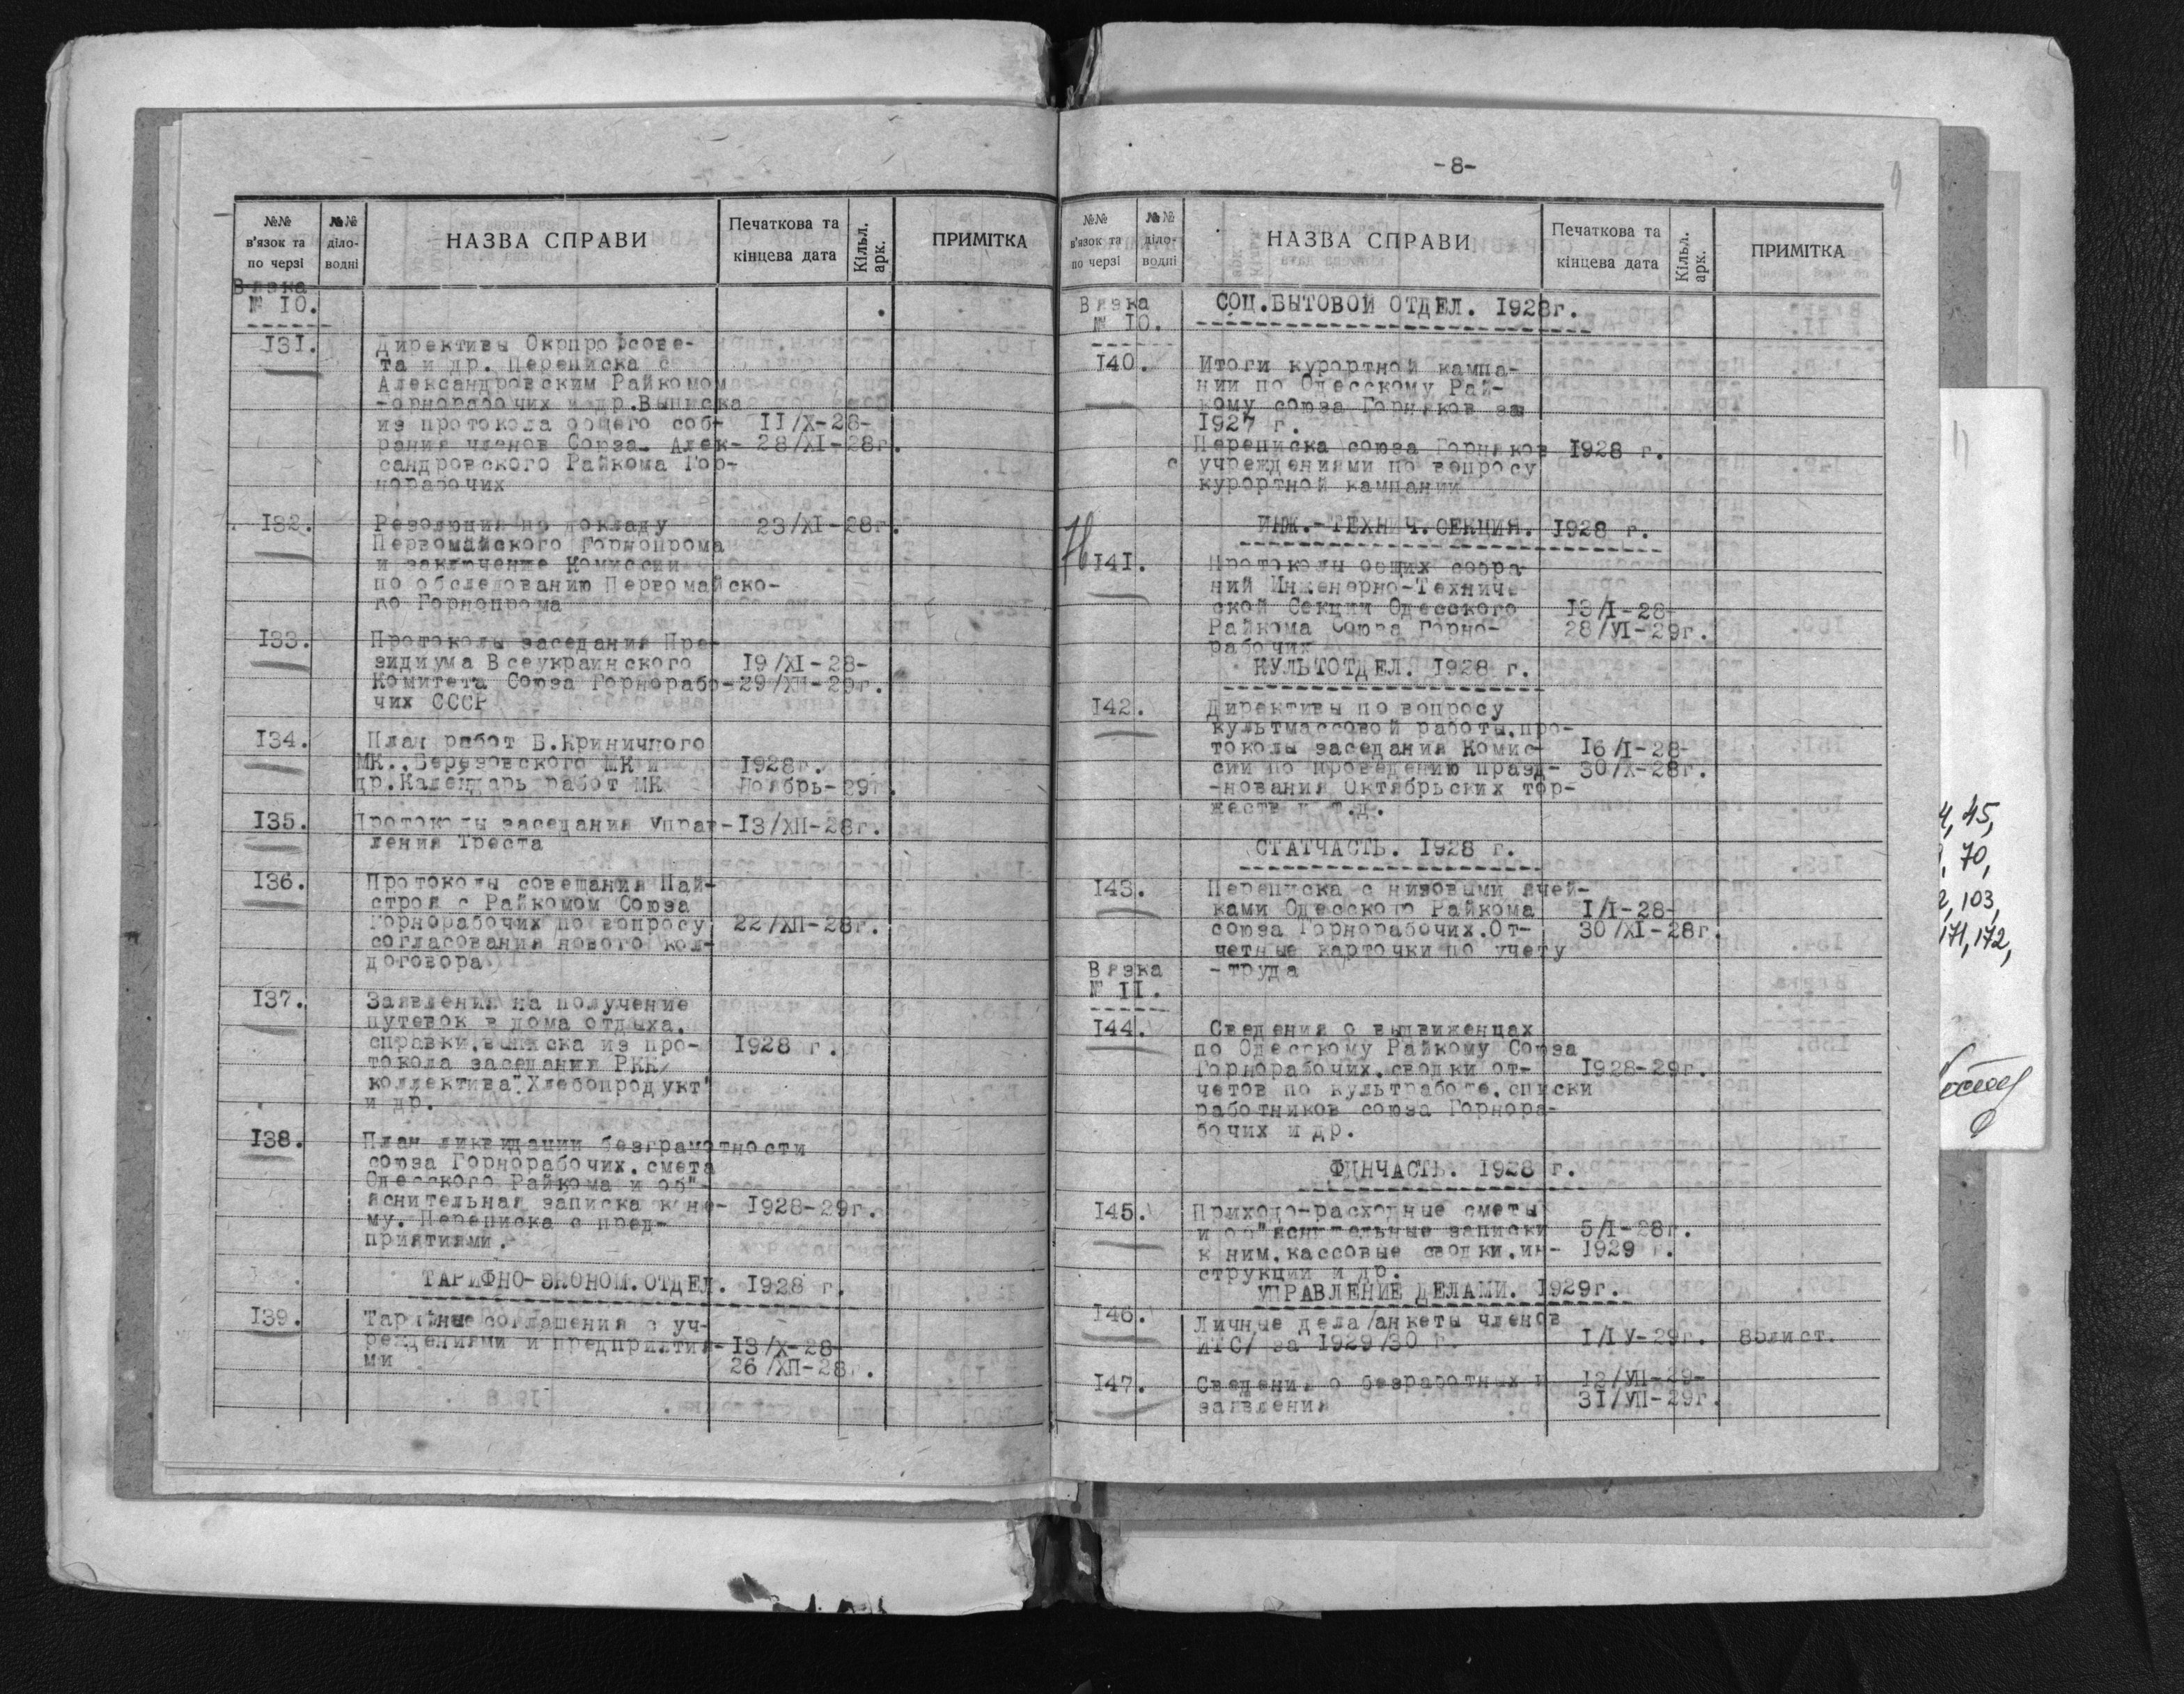 №№
в'язок та
по черзі
№№
діло-
водні
НАЗВА СПРАВИ
Печаткова та
кінцева дата
Кільк.
арк.
ПРИМІТКА
Вязка
№ 10.
131.
Директивы Окрпрофсове-
та и др. Переписка с
Александровским Райкомом
-орнорабочих и др.Выписка
из протокола общего соб- II/X-28-
рания членов Союза Алек- 28/XI-28г.
сандровского Райкома Гор-
норабочих
132. Резолюция по докладу 23/XI-28г.
Первомайского Горнопрома
и заключение Комиссии
по обследованию Первомайско-
го Горнопрома
133. Протоколы заседания Пре-
зидиума Всеукраинского 19/XI-28-
Комитета Союза Горнорабо- 29/ХП-29г.
чих СССР
134. План работ Б.Криничного
МК.,Березовского МК и 1928г.
др.Календарь работ МК Ноябрь-29г.
135. Протоколы заседания Управ- 13/ХП-28г.
ления Треста
136. Протоколы совещания Май-
строя с Райкомом Союза
Горнорабочих по вопросу 22/ХП-28г.
согласования нового кол-
договора
137. Заявления на получение
путевок в дома отдыха,
справки,выписка из про- 1928 г.
токола заседания РКК
коллектива "Хлебопродукт"
и др.
138. План ликвидации безграмотности
союза Горнорабочих,смета
Одесского Райкома и об"-
яснительная записка к не- 1928-29г.
му. Переписка с пред-
приятиями.
ТАРИФНО-ЭКОНОМ.ОТДЕЛ. 1928 г.
139. Тарифные соглашения с уч-
реждениями и предприятия- 13/X-28-
ми 26/ХП-28г.
-8-
9
№№
в'язок та
по черзі
№№
діло-
водні
НАЗВА СПРАВИ
Печаткова та
кінцева дата
Кільк.
арк.
ПРИМІТКА
Вязка
№ 10.
СОЦ.БЫТОВОЙ ОТДЕЛ. 1928г.
140. Итоги курортной кампа-
нии по Одесскому Рай-
кому союза Горняков за
1927 г.
Переписка союза Горняков 1928 г.
с учреждениями по вопросу
курортной кампании
ИНЖ.-ТЕХНИЧ.СЕКЦИЯ. 1928 г.
141. Протоколы общих собра-
ний Инженерно-Техниче-
ской Секции Одесского 13/I-28-
Райкома Союза Горно- 28/VI-29г.
рабочих
КУЛЬТОТДЕЛ. 1928 г.
142. Директивы по вопросу
культмассовой работы,про-
токолы заседания Комис- 16/I-28-
сии по проведению празд- 30/X-28г.
-нования Октябрьских тор-
жеств и т.д.
СТАТЧАСТЬ. 1928 г.
143. Переписка с низовыми ячей-
ками Одесского Райкома I/I-28-
союза Горнорабочих.От- 30/XI-28г.
четные карточки по учету
-труда
Вязка
№ II.
144. Сведения о выдвиженцах
по Одесскому Райкому Союза
Горнорабочих,сводки от- 1928-29г.
четов по культработе,списки
работников союза Горнора-
бочих и др.
ФИНЧАСТЬ. 1928 г.
145. Приходо-расходные сметы
и об"яснительные записки 5/I-28г.
к ним,кассовые сводки,ин- 1929 г.
струкции и др.
УПРАВЛЕНИЕ ДЕЛАМИ. 1929г.
146. Личные дела/анкеты членов
ИТС/ за 1929/30 г. I/IУ-29г. 85лист.
147. Сведения о безработных и 12/УП-29-
заявления 31/УП-29г.
45,
70,
103,
171, 172,